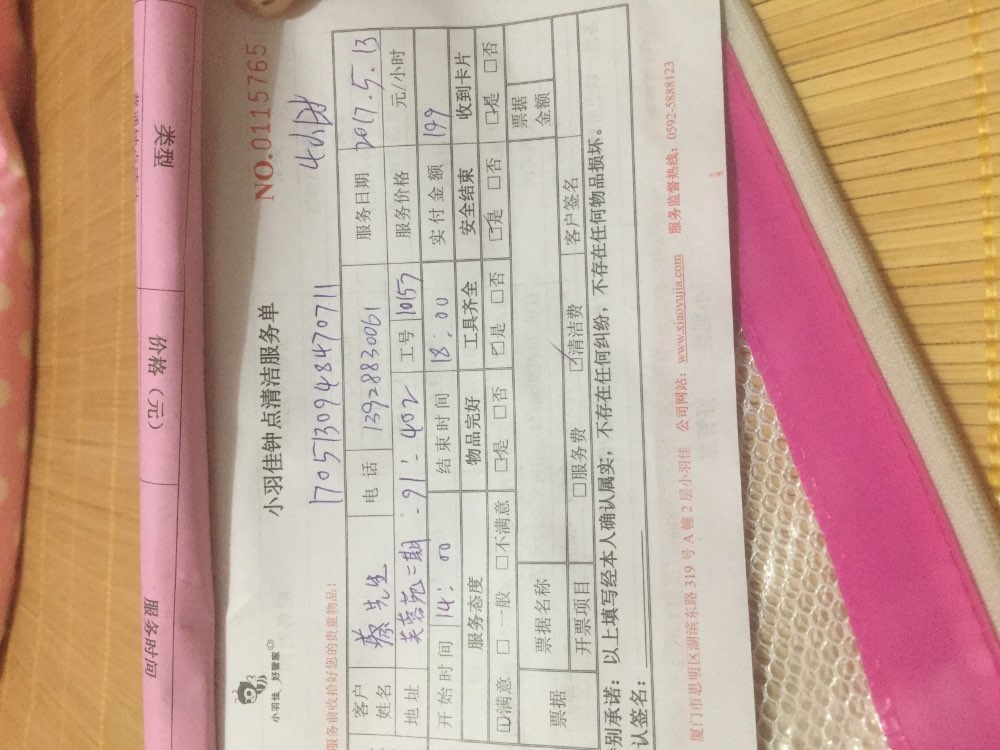 类型
价格（元）
服务时间
小羽佳 好管家
小羽佳钟点清洁服务单
NO.0115765
服务前收拾好您的贵重物品！
1705130948470711
4小时
客户姓名 蔡先生 电话 13928830061 服务日期 2017.5.13
地址 芙蓉苑二期 91-402 工号 10157 服务价格 元/小时
开始时间 14:00 结束时间 18:00 实付金额 199
服务态度 物品完好 工具齐全 安全结束 收到卡片
☑满意 □一般 □不满意 □是 □否 ☑是 □否 ☑是 □否 ☑是 □否
票据 票据名称 票据金额
开票项目 □服务费 ☑清洁费 客户签名
别承诺：以上填写经本人确认属实，不存在任何纠纷，不存在任何物品损坏。
认签名：
厦门市思明区湖滨东路319号A幢2层小羽佳 公司网站：www.xiaoyujia.com 服务监督热线：0592-5888123